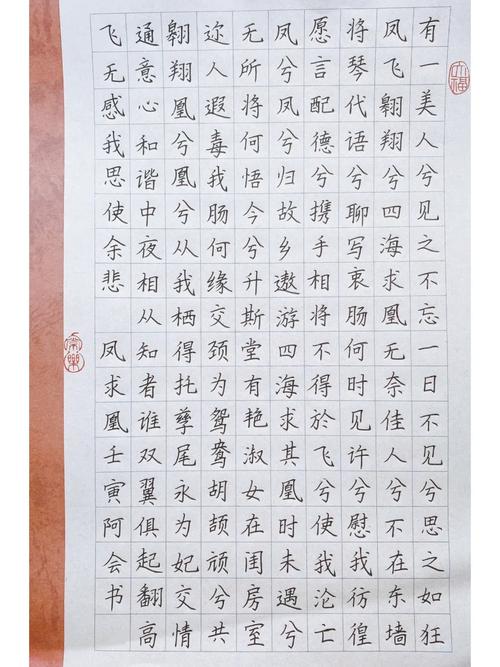 有一美人兮见之不忘一日不见兮思之如狂
凤飞翱翔兮四海求凰无奈佳人兮不在东墙
将琴代语兮聊写衷肠何时见许兮慰我彷徨
愿言配德兮携手相将不得於飞兮使我沦亡
凤兮凤兮归故乡遨游四海求其凰时未遇兮
无所将何悟今兮升斯堂有艳淑女在闺房室
迩人遐毒我肠何缘交颈为鸳鸯胡颉颃兮共
翱翔凰兮凰兮从我栖得托孳尾永为妃交情
通意心和谐中夜相从知者谁双翼俱起翻高
飞无感我思使余悲
凤求凰壬寅阿会书